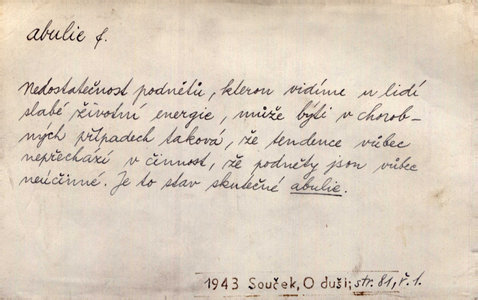 abulie f.
Nedostatečnost podnětů, kterou vidíme u lidí
slabé životní energie, může býti v chorob-
ných případech taková, že tendence vůbec
nepřechází v činnost, že podněty jsou vůbec
neúčinné. Je to stav skutečné abulie.
1943 Souček, O duši, str. 81, ř. 1.